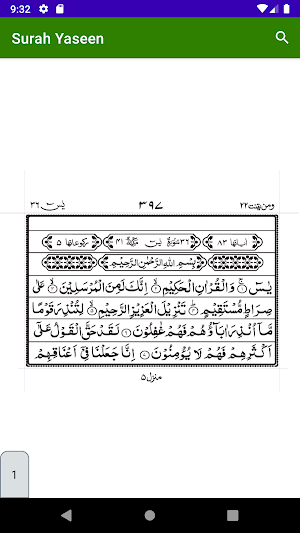 9:32
Surah Yaseen
ومن یقنت ۲۲ ۳۹۷ یٰسٓ ۳۶
اٰیاتها ۸۳ ۳۶ سُوْرَةُ یٰسٓ مَكِّیَّةٌ ۴۱ رکوعاتها ۵
بِسْمِ اللّٰهِ الرَّحْمٰنِ الرَّحِیْمِ
یٰسٓ ۚ﴿۱﴾ وَالْقُرْاٰنِ الْحَكِیْمِ ۙ﴿۲﴾ اِنَّكَ لَمِنَ الْمُرْسَلِیْنَ ۙ﴿۳﴾ عَلٰی
صِرَاطٍ مُّسْتَقِیْمٍ ؕ﴿۴﴾ تَنْزِیْلَ الْعَزِیْزِ الرَّحِیْمِ ۙ﴿۵﴾ لِتُنْذِرَ قَوْمًا
مَّاۤ اُنْذِرَ اٰبَآؤُهُمْ فَهُمْ غٰفِلُوْنَ ﴿۶﴾ لَقَدْ حَقَّ الْقَوْلُ عَلٰۤی
اَكْثَرِهِمْ فَهُمْ لَا یُؤْمِنُوْنَ ﴿۷﴾ اِنَّا جَعَلْنَا فِیْۤ اَعْنَاقِهِمْ
منزل ۵
1